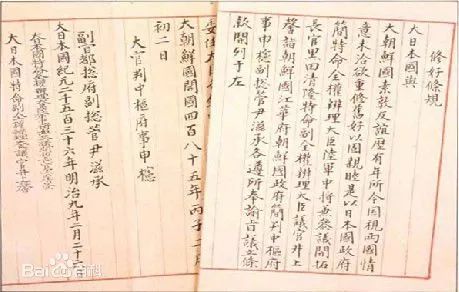 修好條規
大日本國與
大朝鮮國素敦友誼歷有年所今因視兩國情
意未洽欲重修舊好以固親睦是以日本國政府
簡特命全權辨理大臣陸軍中將兼參議開拓
長官黑田清隆特命副全權辨理大臣議官井上
馨詣朝鮮國江華府朝鮮國政府簡判中樞府
事申櫶副摠管尹滋承各遵所奉諭旨議立條
款開列于左
大朝鮮國開國四百八十五年丙子二月
初二日
大官判中樞府事申櫶
副官都摠府副摠管尹滋承
大日本國紀元二千五百三十六年明治九年二月二十六
大日本國特命副全權辨理大臣議官井上馨
Bai百科